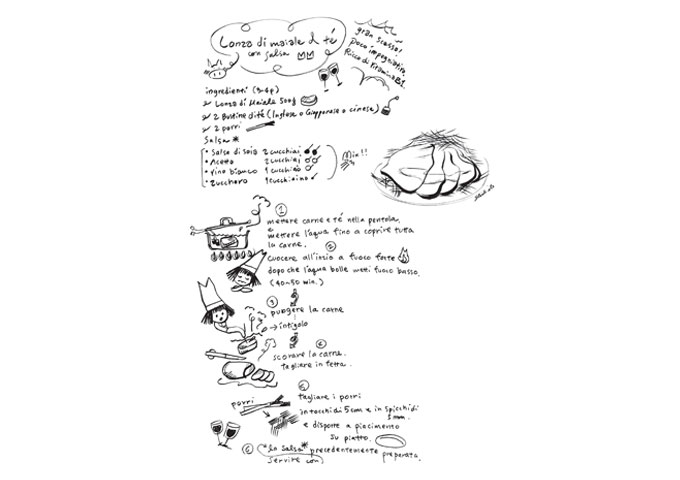 Lonza di maiale al té
con salsa
gran scasso!
poco impegnativa,
Ricco di Vitamina B1.
ingredienti (3-4p)
Lonza di Maiale 500g
2 Bustine di té (Inglese o Giapponese o cinese)
2 porri
Salsa*
• Salsa di soia 2 cucchiai
• Aceto 2 cucchiai
• vino bianco 1 cucchiaio
• zucchero 1 cucchiaino
Mix!!
1
mettere carne e té nella pentola,
e
mettere l'aqua fino a coprire tutta
la carne.
2
cuocere all'inzio a fuoco forte
dopo che l'aqua bolle metti fuoco basso.
(40~50 min.)
3
pungere la carne
→ intigolo
4
scolare la carne.
tagliare in fetta.
5
porri
tagliare i porri
in tocchi di 5cm e in spicchi di
1mm.
e disporre a piacimento
su piatto.
6
la salsa* precedentemente preparata.
servire con